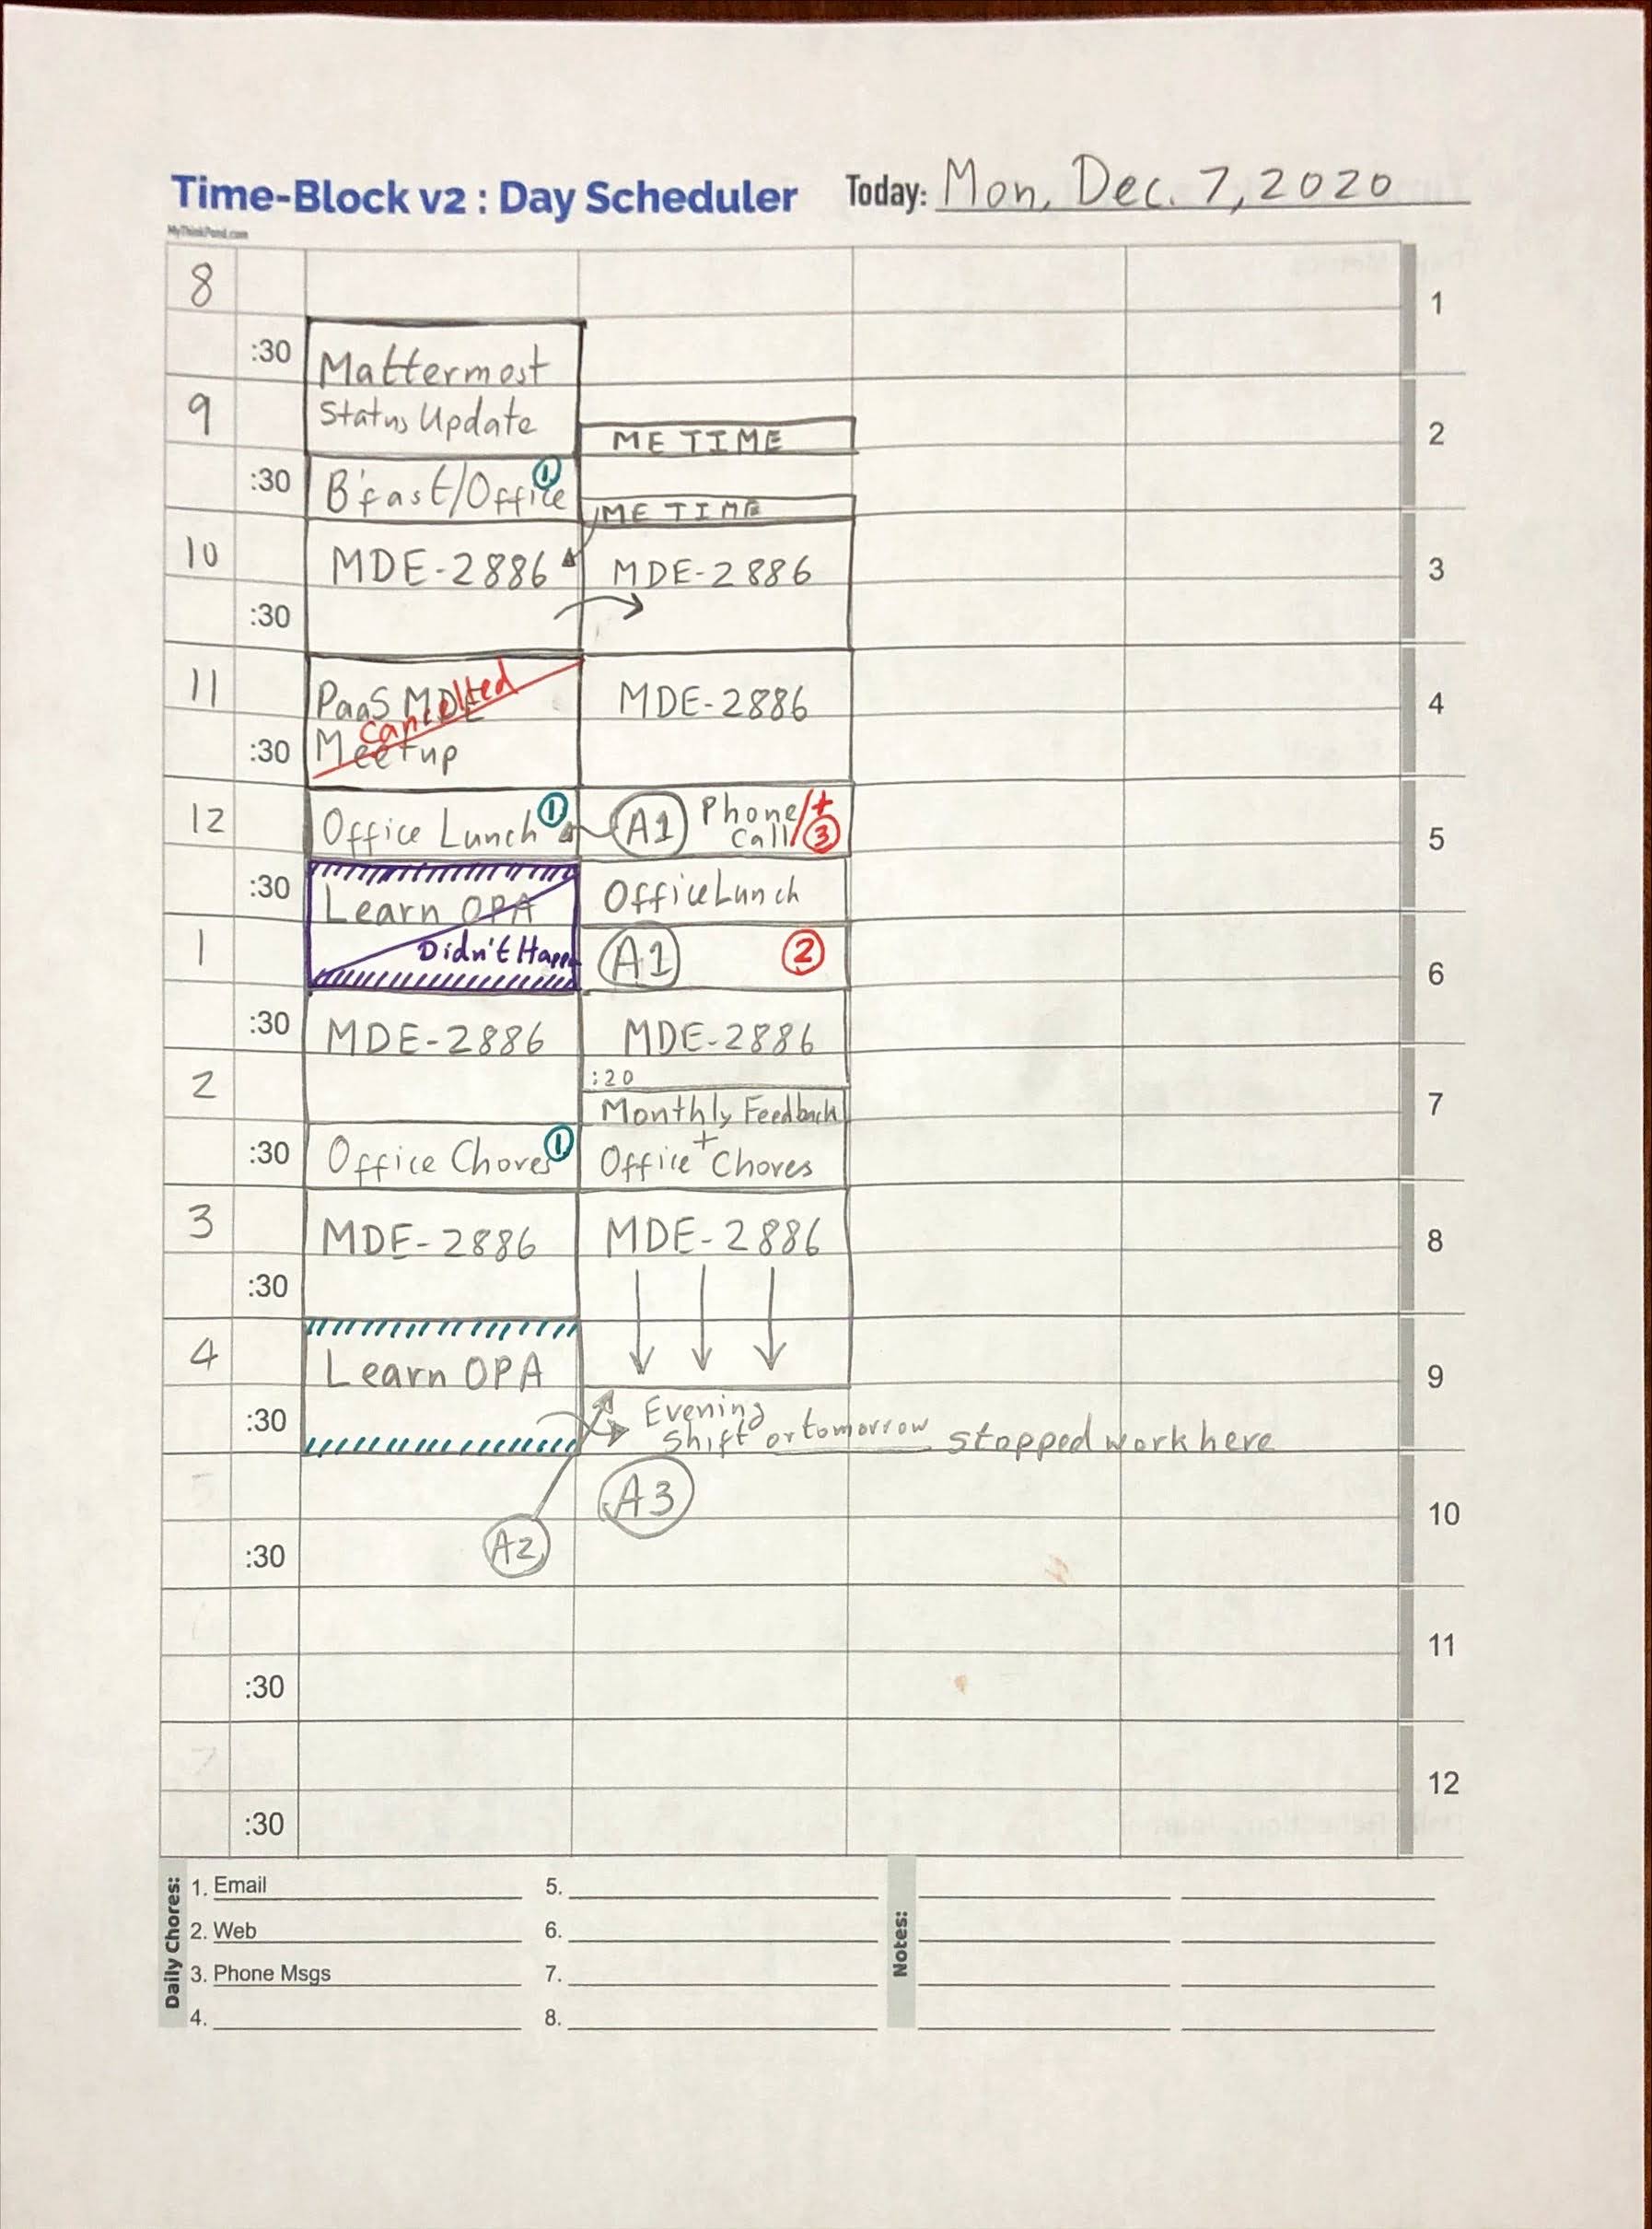 Time-Block v2 : Day Scheduler Today: Mon, Dec. 7, 2020
MyThinkPond.com
8
1
:30 Mattermost
9 Status Update
ME TIME
2
:30 B'fast/Office 1
ME TIME
10 MDE-2886 MDE-2886
3
:30
11 PaaS MDE
Cancelled
MDE-2886
4
:30 Meetup
12 Office Lunch 1
A1 Phone/+
Call/3
5
:30 Learn OPA
Office Lunch
1 Didn't Happ
A1 2
6
:30 MDE-2886 MDE-2886
2
:20
Monthly Feedback
7
:30 Office Chores 1
+
Office Chores
3 MDE-2886 MDE-2886
8
:30
4 Learn OPA
9
:30
Evening
Shift or tomorrow stopped work here
5
A3
10
:30
A2
11
:30
7
12
:30
Daily Chores:
1. Email
2. Web
3. Phone Msgs
4.
5.
6.
7.
8.
Notes: